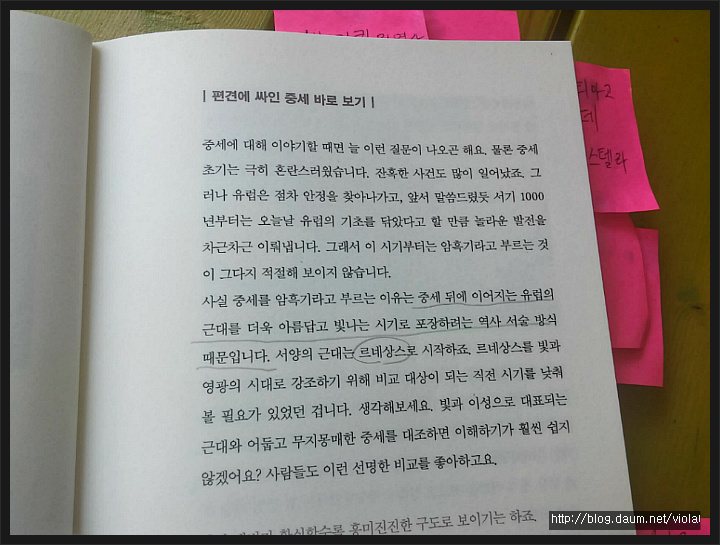 | 편견에 싸인 중세 바로 보기 |
중세에 대해 이야기할 때면 늘 이런 질문이 나오곤 해요. 물론 중세
초기는 극히 혼란스러웠습니다. 잔혹한 사건도 많이 일어났죠. 그
러나 유럽은 점차 안정을 찾아나가고, 앞서 말씀드렸듯 서기 1000
년부터는 오늘날 유럽의 기초를 닦았다고 할 만큼 놀라운 발전을
차근차근 이뤄냅니다. 그래서 이 시기부터는 암흑기라고 부르는 것
이 그다지 적절해 보이지 않습니다.
사실 중세를 암흑기라고 부르는 이유는 중세 뒤에 이어지는 유럽의
근대를 더욱 아름답고 빛나는 시기로 포장하려는 역사 서술 방식
때문입니다. 서양의 근대는 르네상스로 시작하죠. 르네상스를 빛과
영광의 시대로 강조하기 위해 비교 대상이 되는 직전 시기를 낮춰
볼 필요가 있었던 겁니다. 생각해보세요. 빛과 이성으로 대표되는
근대와 어둡고 무지몽매한 중세를 대조하면 이해하기가 훨씬 쉽지
않겠어요? 사람들도 이런 선명한 비교를 좋아하고요.
흥미진진한 구도로 보이기는 하죠.
티아고
데
스텔라
http://blog.daum.net/violai